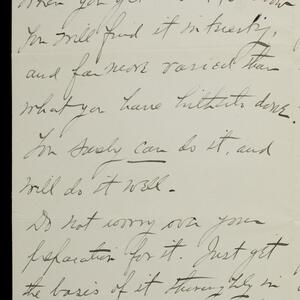 When you get
You will find it interestg,
and far more varied than
what you have hitherto done.
You surely can do it, and
will do it well.
Do not worry over your
preparation for it. Just get
the basis of it thoroughly in